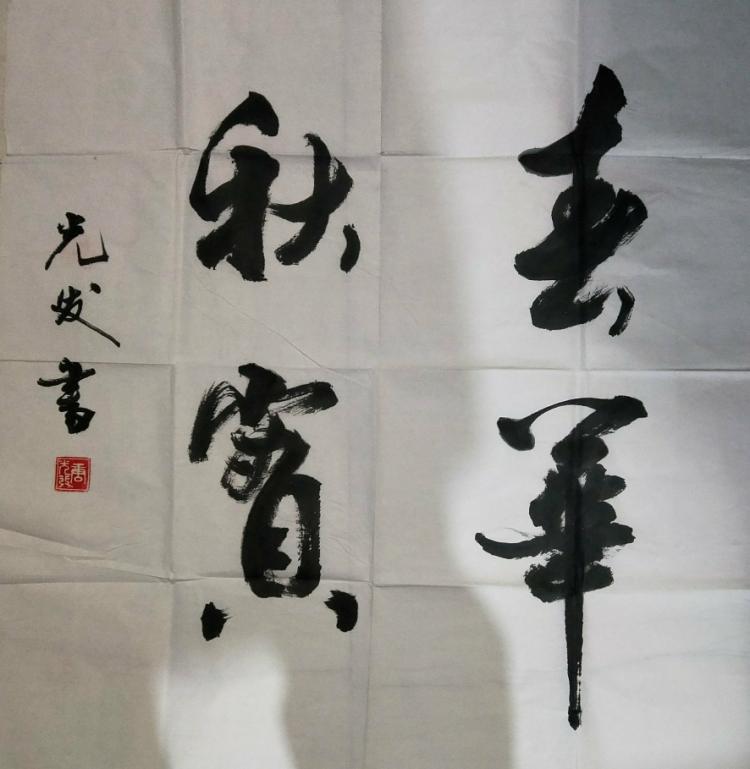 春華
秋實
光发書